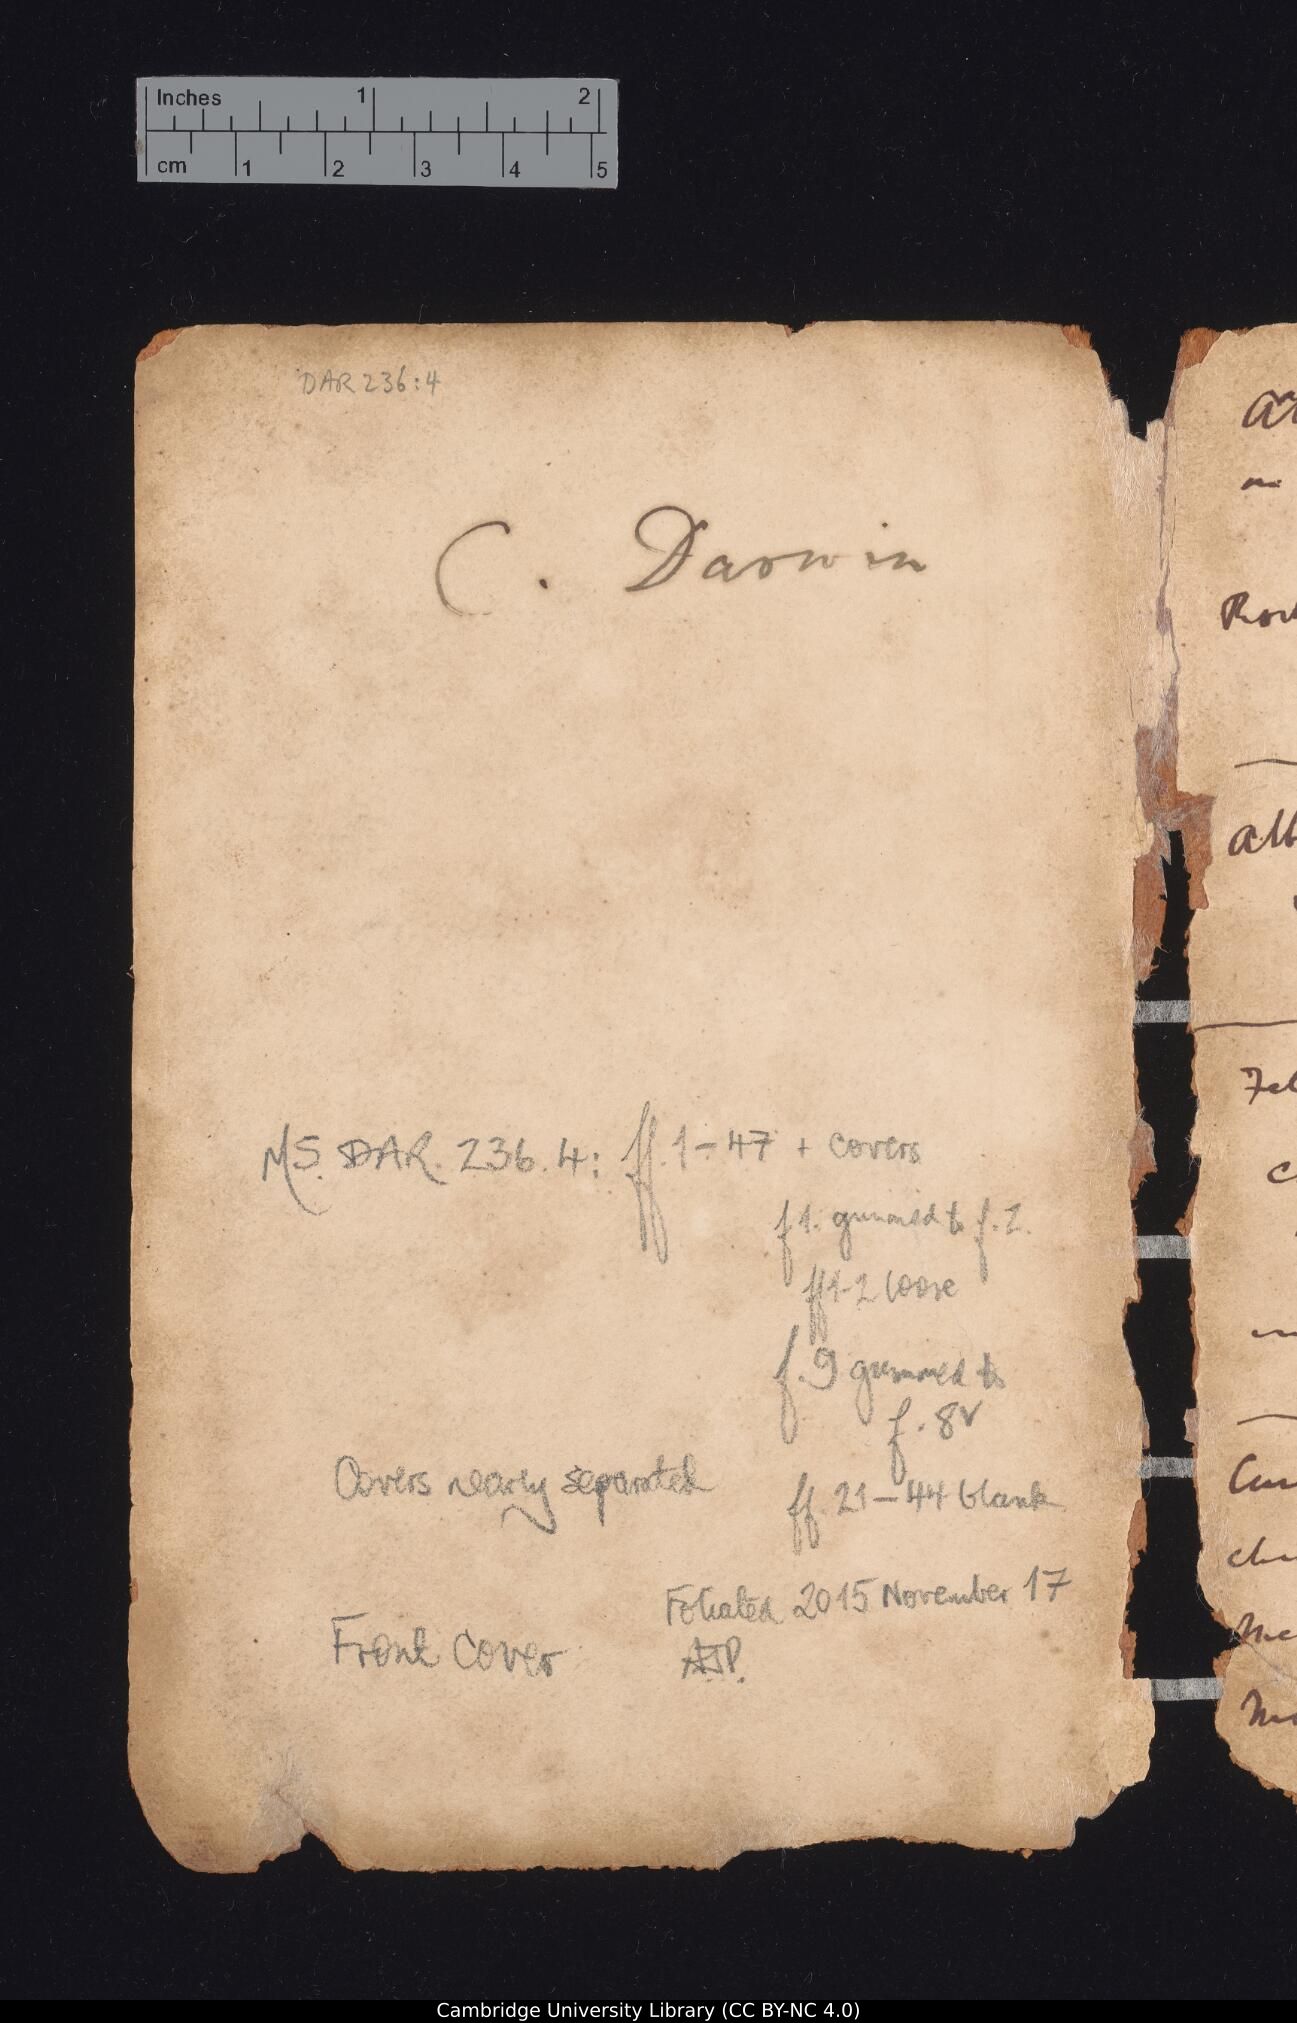 Inches 1 2
cm 1 2 3 4 5
DAR 236:4
C. Darwin
MS. DAR. 236.4: ff. 1-47 + covers
f 1. gummed to f. 2.
ff 1-2 loose
f. 9 gummed to
f. 8v
Covers nearly separated
ff. 21-44 blank
Foliated 2015 November 17
Front Cover
AJP.
Cambridge University Library (CC BY-NC 4.0)